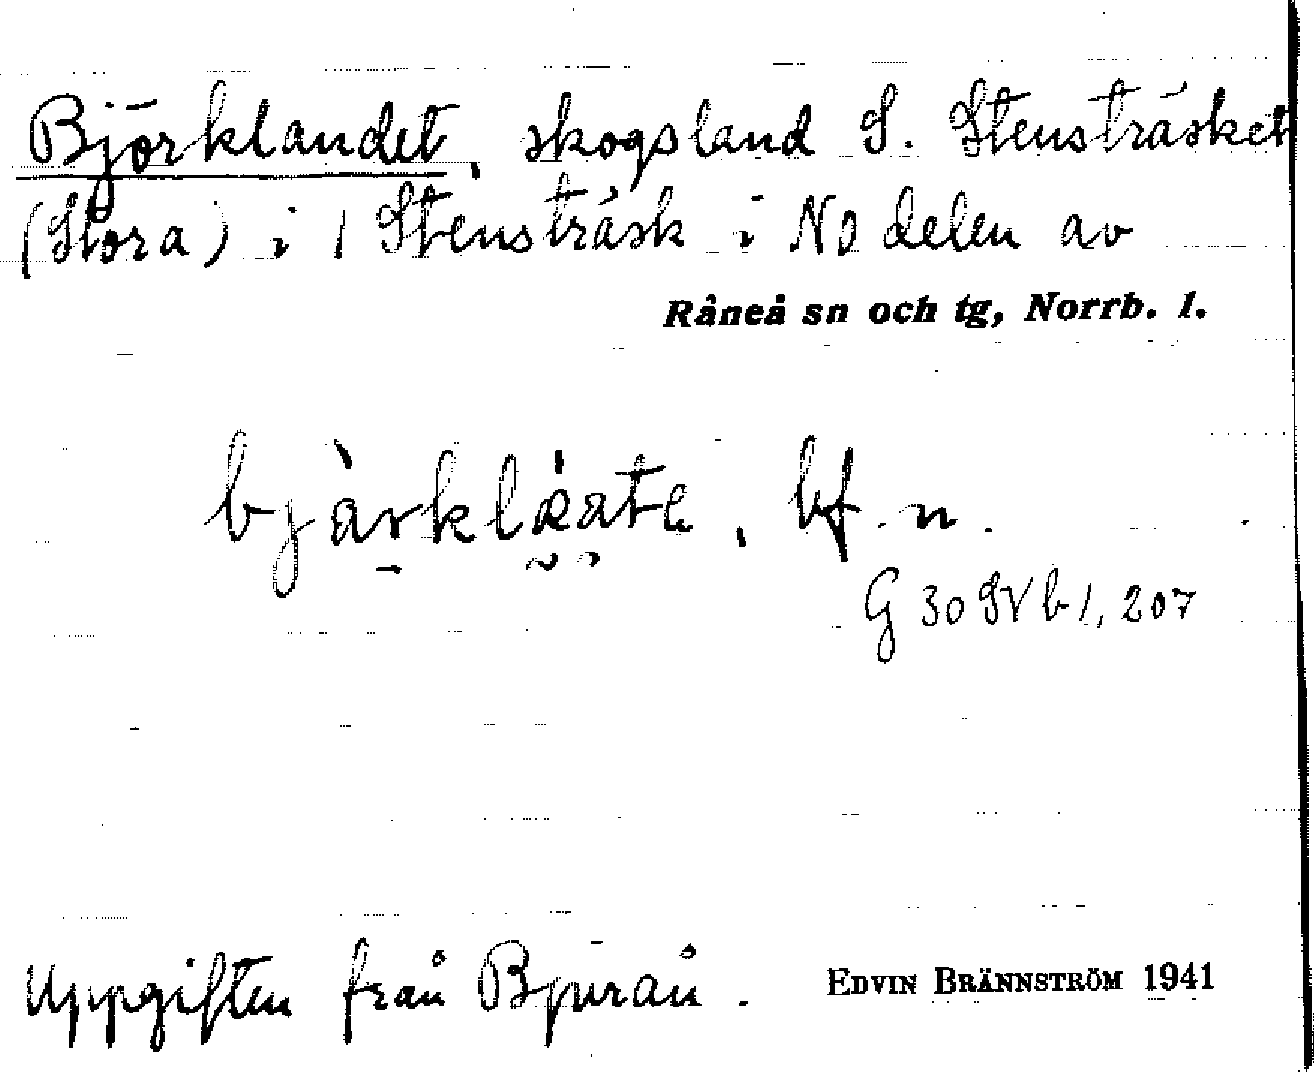 Björklandet, skogsland S. Stensträsket
(Stora) i 1 Stensträsk i NO delen av
Råneå sn och tg, Norrb. l.
bf. n.
G 30 SV b 1, 207
Uppgiften från Bjurå.
EDVIN BRÄNNSTRÖM 1941